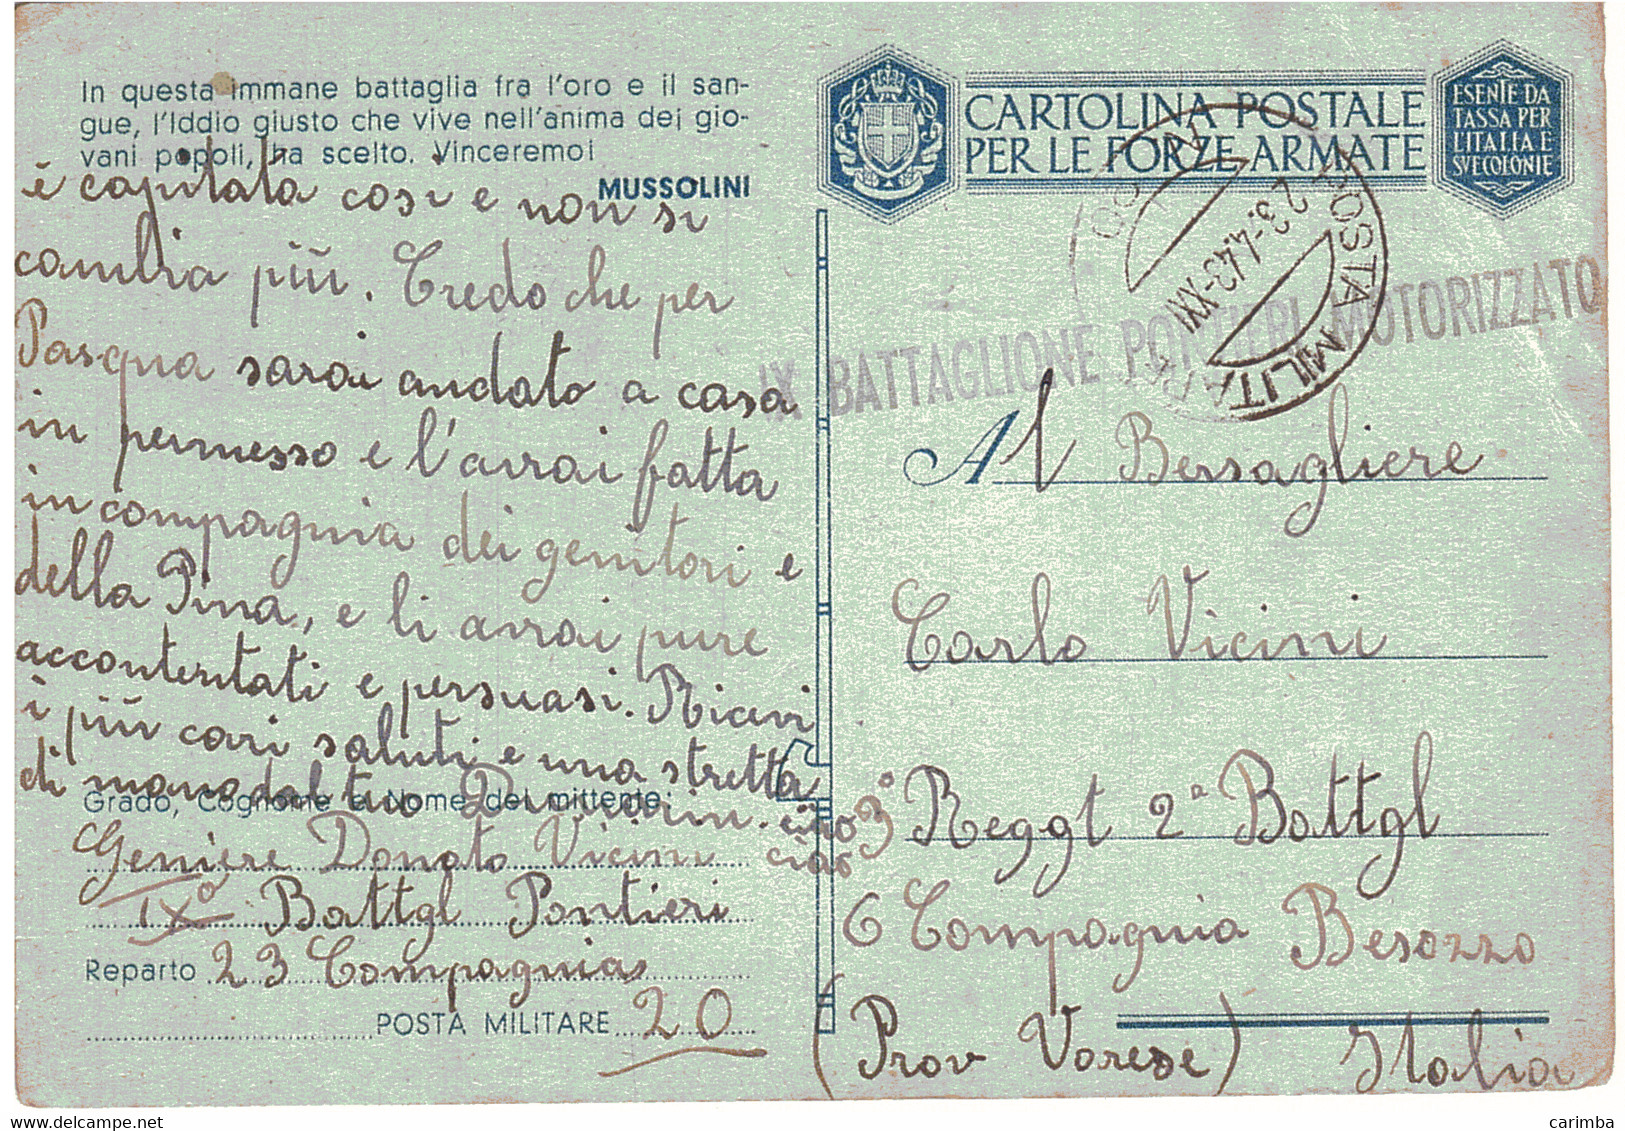 In questa immane battaglia fra l'oro e il san-
gue, l'Iddio giusto che vive nell'anima dei gio-
vani popoli, ha scelto. Vinceremo!
MUSSOLINI
è capitata così e non si
cambia più. Credo che per
Pasqua sarai andato a casa
in permesso e l'avrai fatta
in compagnia dei genitori e
della Pina, e li avrai pure
accontentati e persuasi. Ricevi
i più cari saluti e una stretta
di mano dal tuo
ciao
ciao
Grado, Cognome e Nome del mittente:
Geniere Donato Vicini
IX° Battgl Pontieri
Reparto 23 Compagnia
POSTA MILITARE 20
CARTOLINA POSTALE
PER LE FORZE ARMATE
ESENTE DA
TASSA PER
L'ITALIA E
SUE COLONIE
POSTA MILITARE
23.4.43-XXI
IX BATTAGLIONE PONTIERI MOTORIZZATO
Al Bersagliere
Carlo Vicini
3° Reggt 2ª Battgl
6 Compagnia Besozzo
(Prov Varese) Italia
carimba